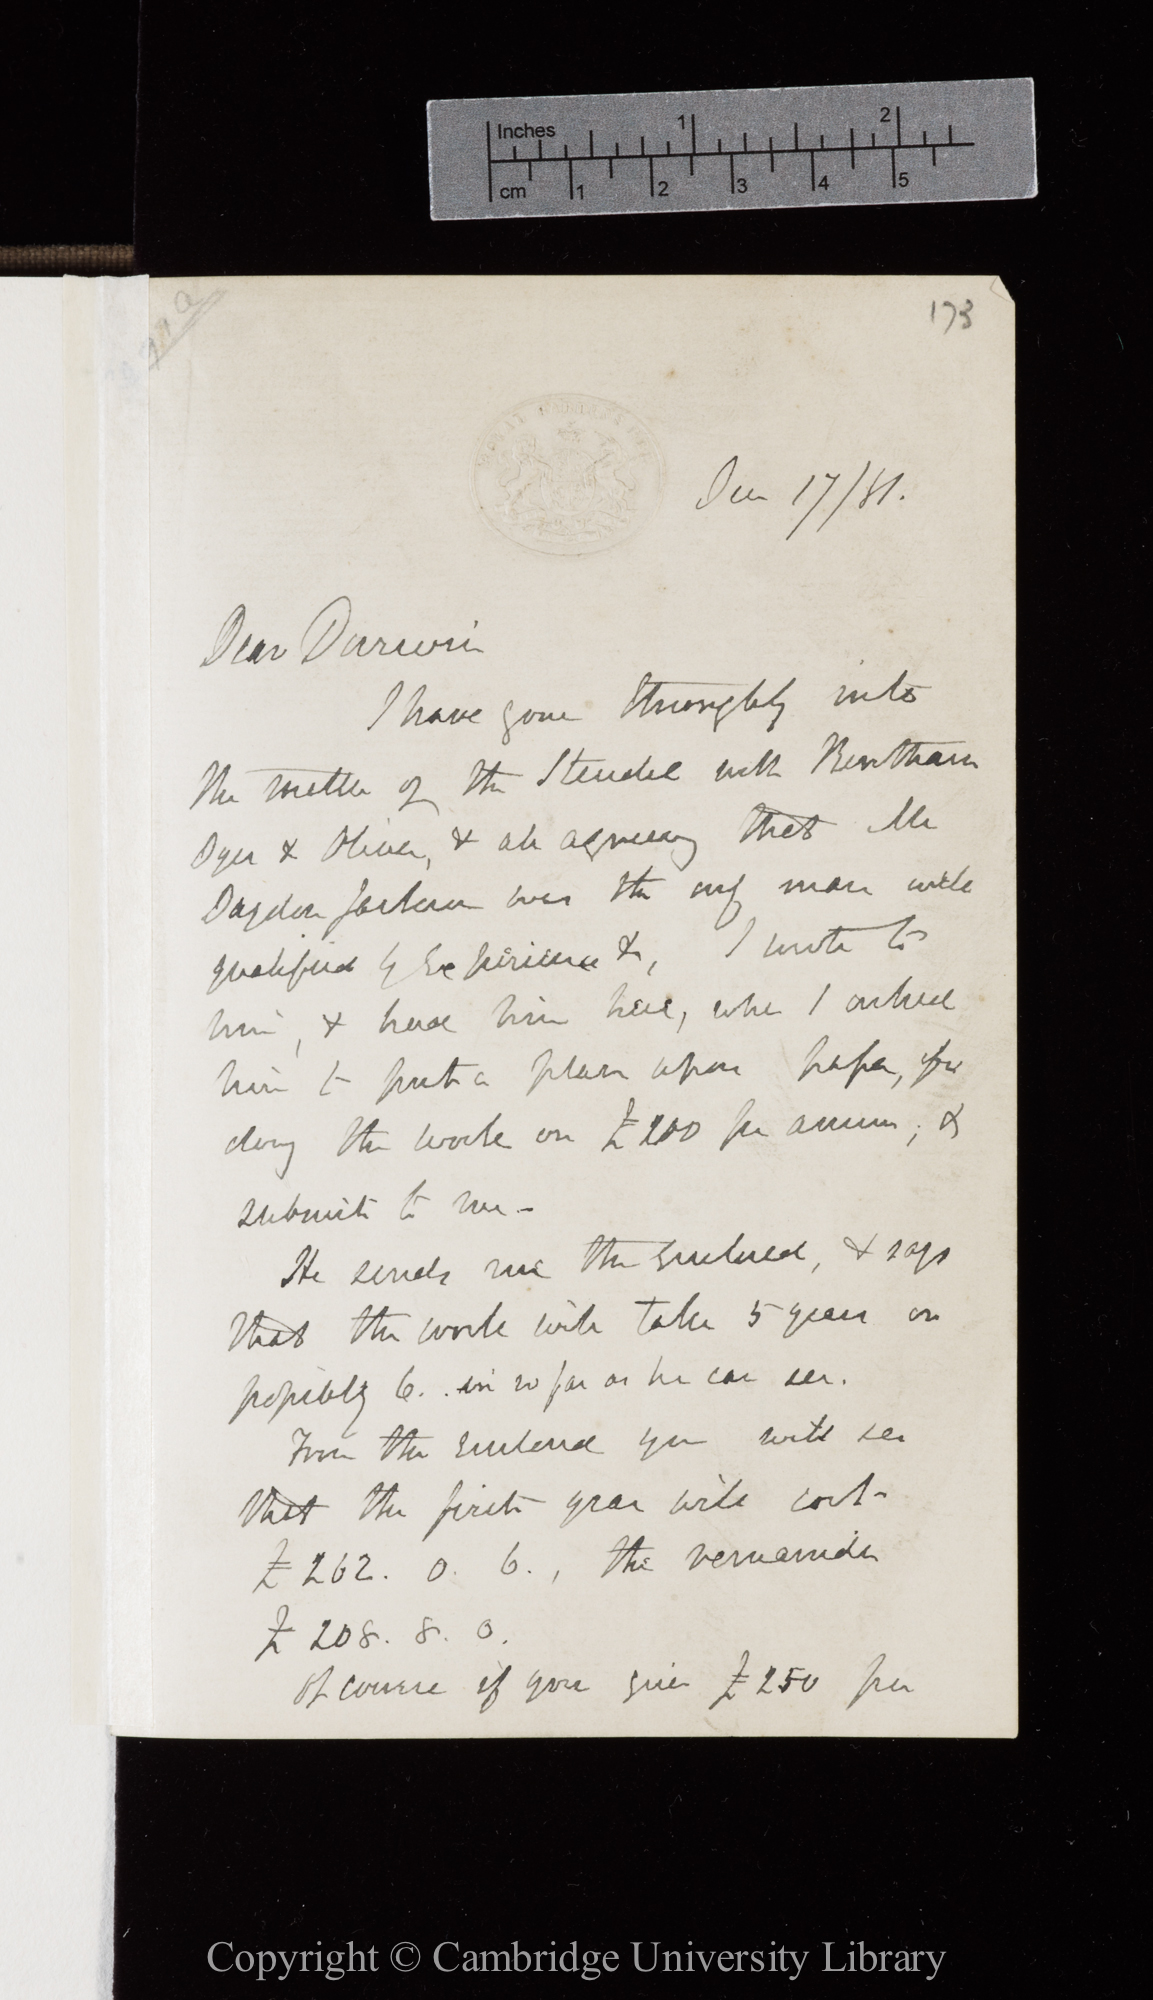 Inches 1 2
cm 1 2 3 4 5
173
Dec 17/81.
Dear Darwin
I have gone thoroughly into
the matter of the Steudel with Bentham
Dyer & Oliver, & all agreeing that Mr
Daydon Jackson was the only man well
qualified by Experience &c, I wrote to
him, & had him here, when I asked
him to put a plan upon paper, for
doing the work on £200 per annum, &
submit to me—
He sends me the enclosed, & says
that the work will take 5 years or
possibly 6. in so far as he can see.
From the enclosed you will see
that the first year will cost
£262. 0. 6., the remainder
£208. 8. 0.
Of course if you give £250 per
Copyright © Cambridge University Library